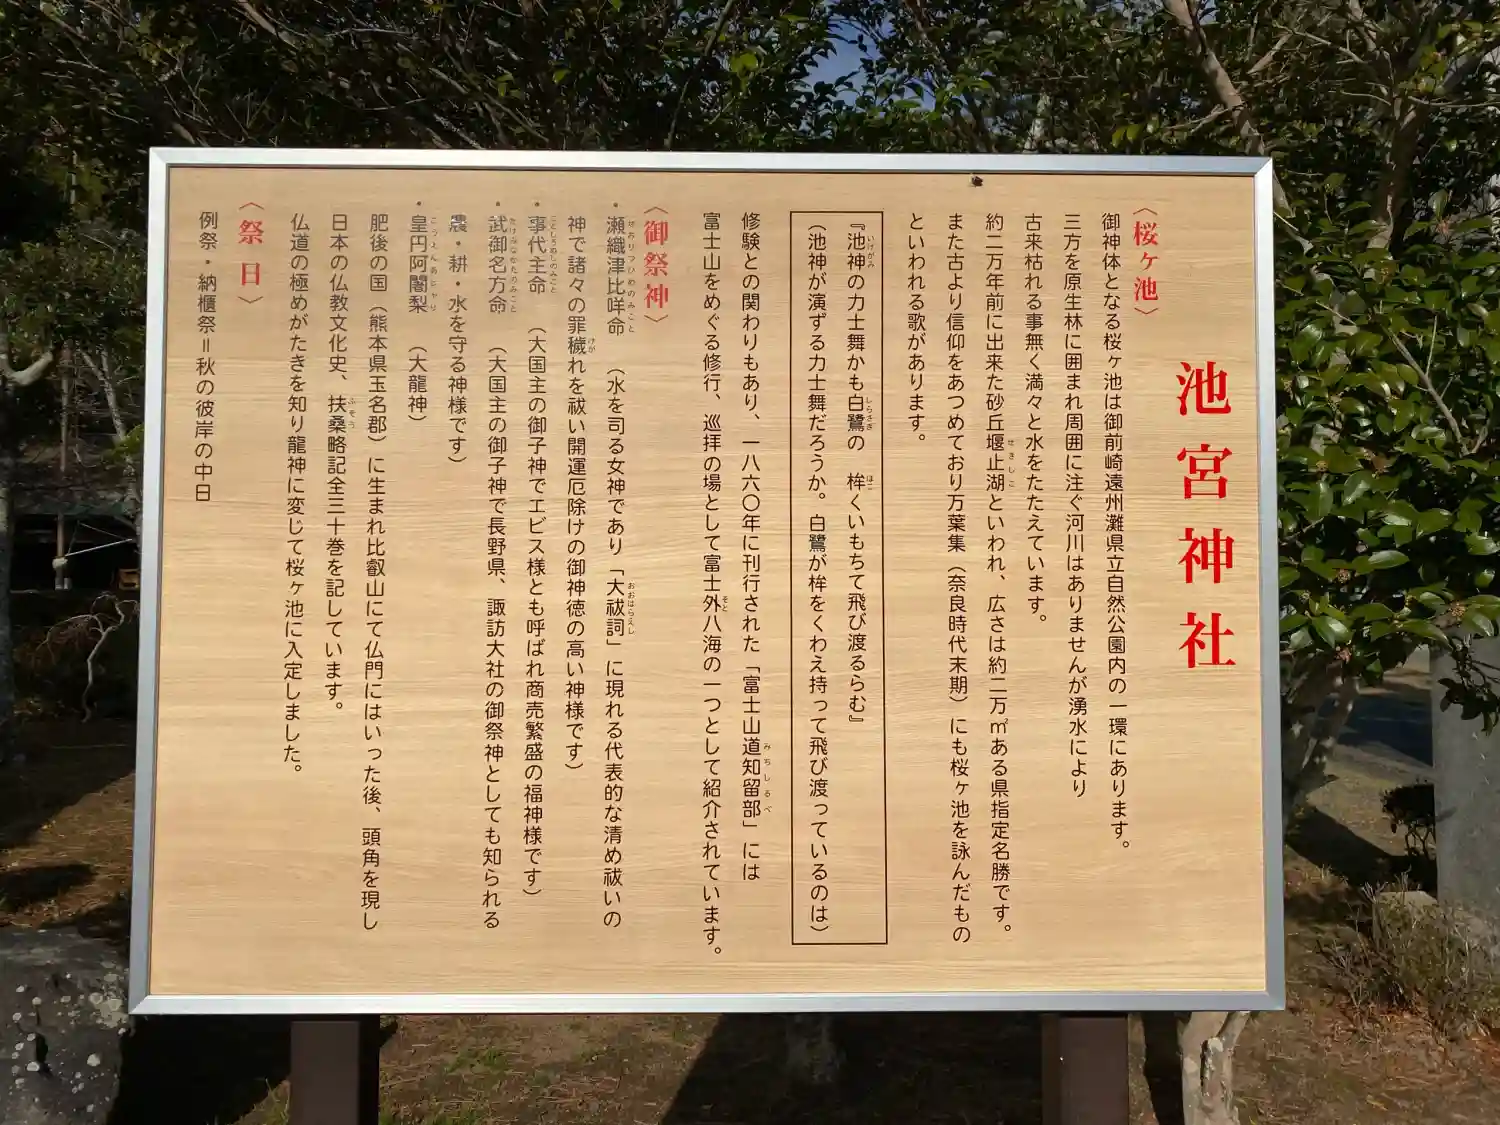 池宮神社
〈桜ケ池〉
御神体となる桜ヶ池は御前崎遠州灘県立自然公園内の一環にあります。
三方を原生林に囲まれ周囲に注ぐ河川はありませんが湧水により
古来枯れる事無く満々と水をたたえています。
約二万年前に出来た砂丘堰止湖といわれ、広さは約二万㎡ある県指定名勝です。
せきしこ
また古より信仰をあつめており万葉集（奈良時代末期）にも桜ヶ池を詠んだもの
といわれる歌があります。
『池神の力士舞かも白鷺の　桙くいもちて飛び渡るらむ』
いけがみ しらさぎ ほこ
（池神が演ずる力士舞だろうか。白鷺が桙をくわえ持って飛び渡っているのは）
修験との関わりもあり、一八六〇年に刊行された「富士山道知留部」には
みちしるべ
富士山をめぐる修行、巡拝の場として富士外八海の一つとして紹介されています。
そと
〈御祭神〉
・瀬織津比咩命　（水を司る女神であり「大祓詞」に現れる代表的な清め祓いの
せおりつひめのみこと おおはらえし
神で諸々の罪穢れを祓い開運厄除けの御神徳の高い神様です）
けが
・事代主命　（大国主の御子神でエビス様とも呼ばれ商売繁盛の福神様です）
ことしろぬしのみこと
・武御名方命　（大国主の御子神で長野県、諏訪大社の御祭神としても知られる
たけみなかたのみこと
農・耕・水を守る神様です）
・皇円阿闍梨　（大龍神）
こうえんあじゃり
肥後の国（熊本県玉名郡）に生まれ比叡山にて仏門にはいった後、頭角を現し
日本の仏教文化史、扶桑略記全三十巻を記しています。
ふそう
仏道の極めがたきを知り龍神に変じて桜ヶ池に入定しました。
〈祭日〉
例祭・納櫃祭＝秋の彼岸の中日